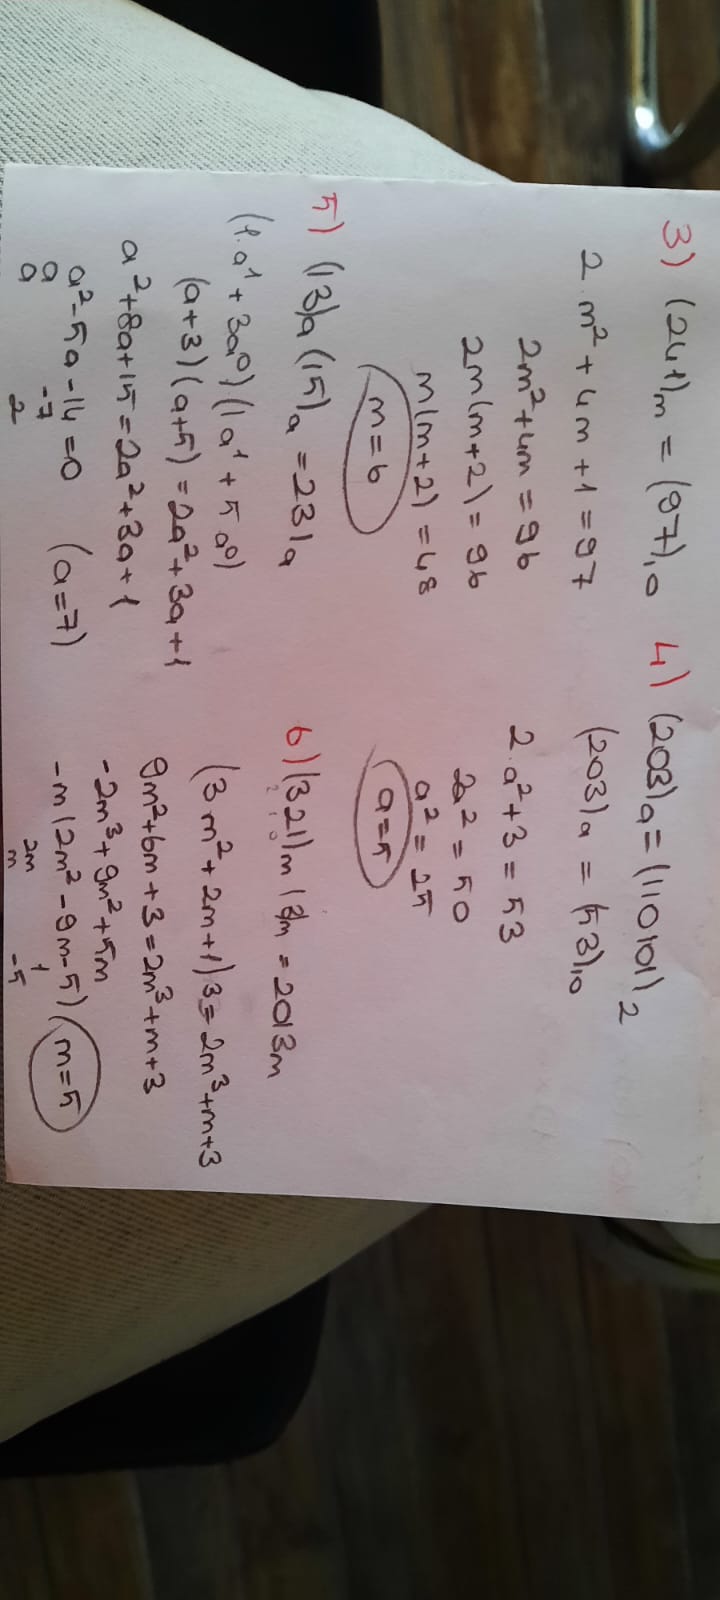 3) (241)m = (97)10
2.m² + 4m + 1 = 97
2m² + 4m = 96
2m(m+2) = 96
m(m+2) = 48
m=6
4) (203)a = (110101)2
(203)a = (53)10
2.a² + 3 = 53
2a² = 50
a² = 25
a=5
5) (13)a (15)a = 231a
(1.a¹ + 3a⁰) (1a¹ + 5a⁰)
(a+3) (a+5) = 2a² + 3a + 1
a² + 8a + 15 = 2a² + 3a + 1
a² - 5a - 14 = 0 (a=7)
a -7
a 2
6) (321)m (3)m = 2013m
(3m² + 2m + 1)3 = 2m³ + m + 3
9m² + 6m + 3 = 2m³ + m + 3
-2m³ + 9m² + 5m
-m(2m² - 9m - 5) m=5
2m 1
m -5